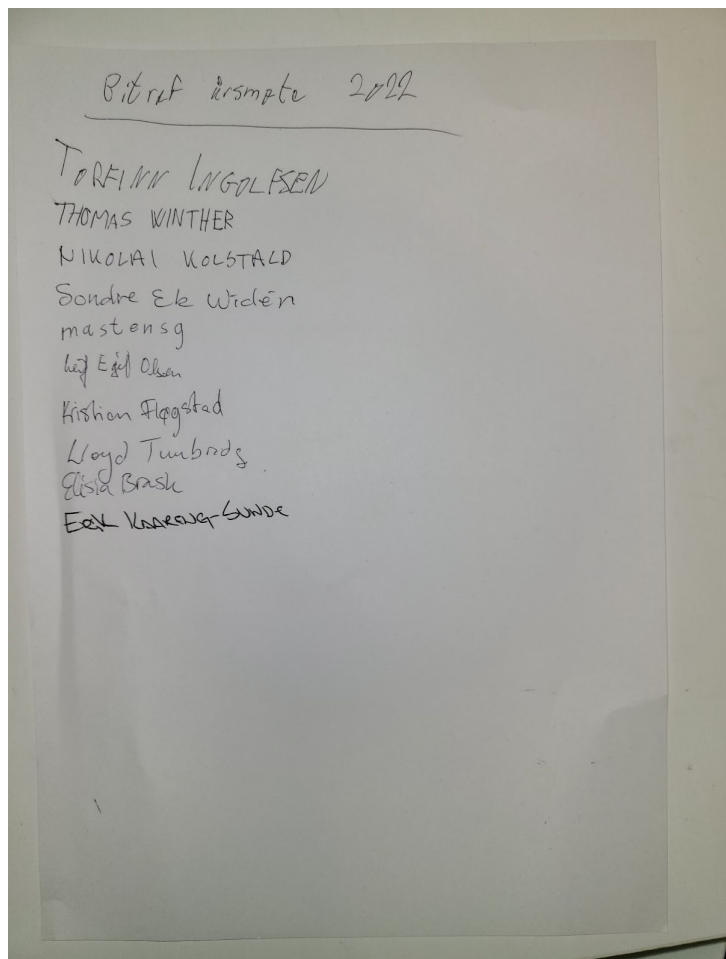 Bitraf årsmøte 2022
TORFINN INGOLFSEN
THOMAS WINTHER
NIKOLAI KOLSTALD
Sondre Ek Widén
mastensg
Leif Egil Olsen
Kristian Fløgstad
Lloyd
Elisia Brask
KAARENG-SUNDE